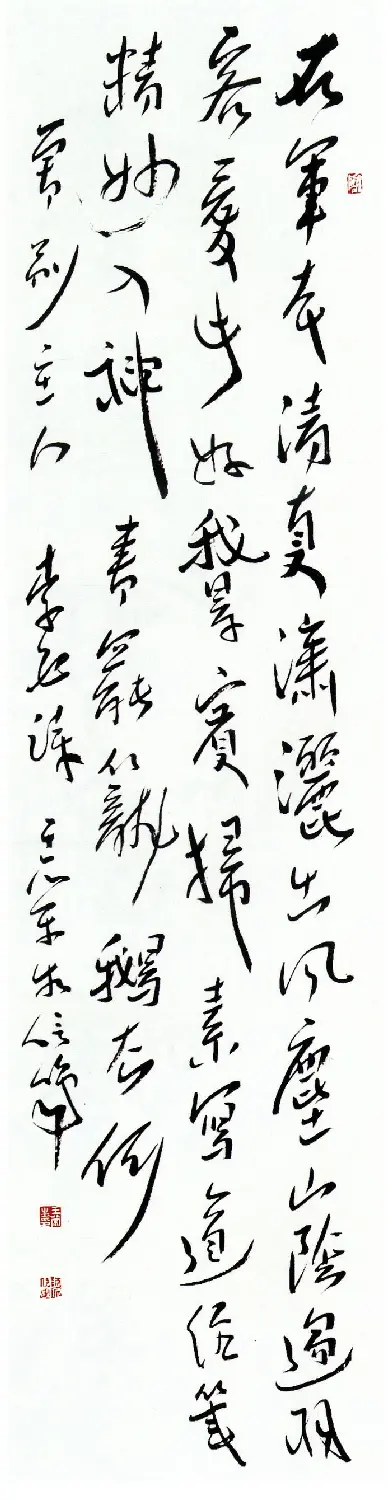 右軍本清真瀟灑出風塵山陰過羽
客愛此好鵝賓掃素寫道經筆
精妙入神書罷籠鵝去何
曾別主人 李白詩 信筆